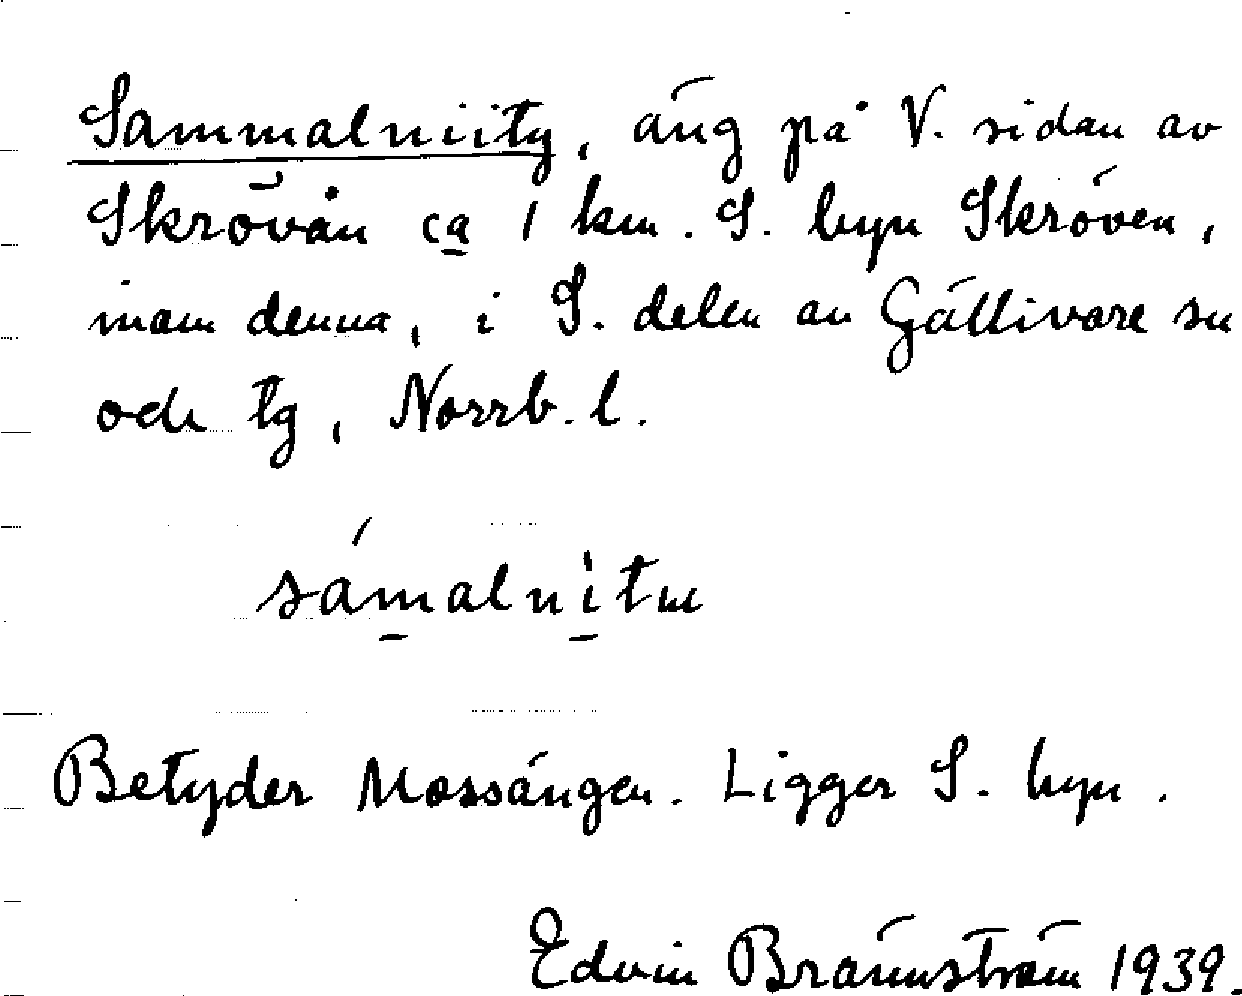 Sammalniity, äng på V. sidan av
Skröván ca 1 km. S. byn Skröven,
inom denna, i S. delen av Gällivare sn
och tg, Norrb. l.
sámalnitɯ
Betyder Mossängen. Ligger S. byn.
Edvin Brännström 1939.